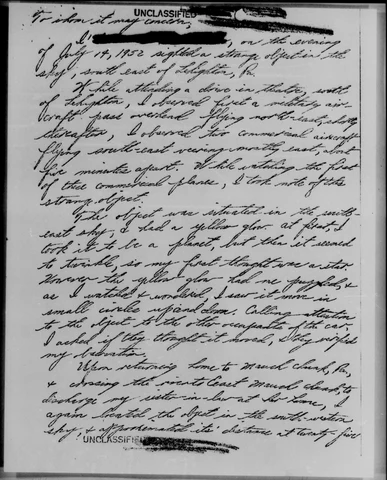 UNCLASSIFIED
To whom it may concern,
I, , on the evening
of July 14, 1952 sighted a strange object in the
sky, south east of Lehighton, Pa.
While attending a drive in theatre, south
of Lehighton, I observed first a military air-
craft pass overhead flying north-east, shortly
thereafter, I observed two commercial aircraft
flying south-east weaving-mostly east, about
five minutes apart. While watching the first
of these commercial-planes, I took note of this
strange object.
The object was situated in the south-
east sky, & had a yellow glow at first, I
took it to be a planet, but then it seemed
to twinkle, so my first thought was a star.
However the yellow glow had me puzzled, &
as I watched & wondered, I saw it move in
small circles up and down. Calling attention
to the object to the other occupants of the car,
I asked if they thought it moved, they verified
my observation.
Upon returning home to Mauch Chunk, Pa,
& crossing the river to East Mauch Chunk, to
discharge my sister-in-law at her home, I
again located the object in the south-western
sky, & approximated its' distance at twenty-five
UNCLASSIFIED